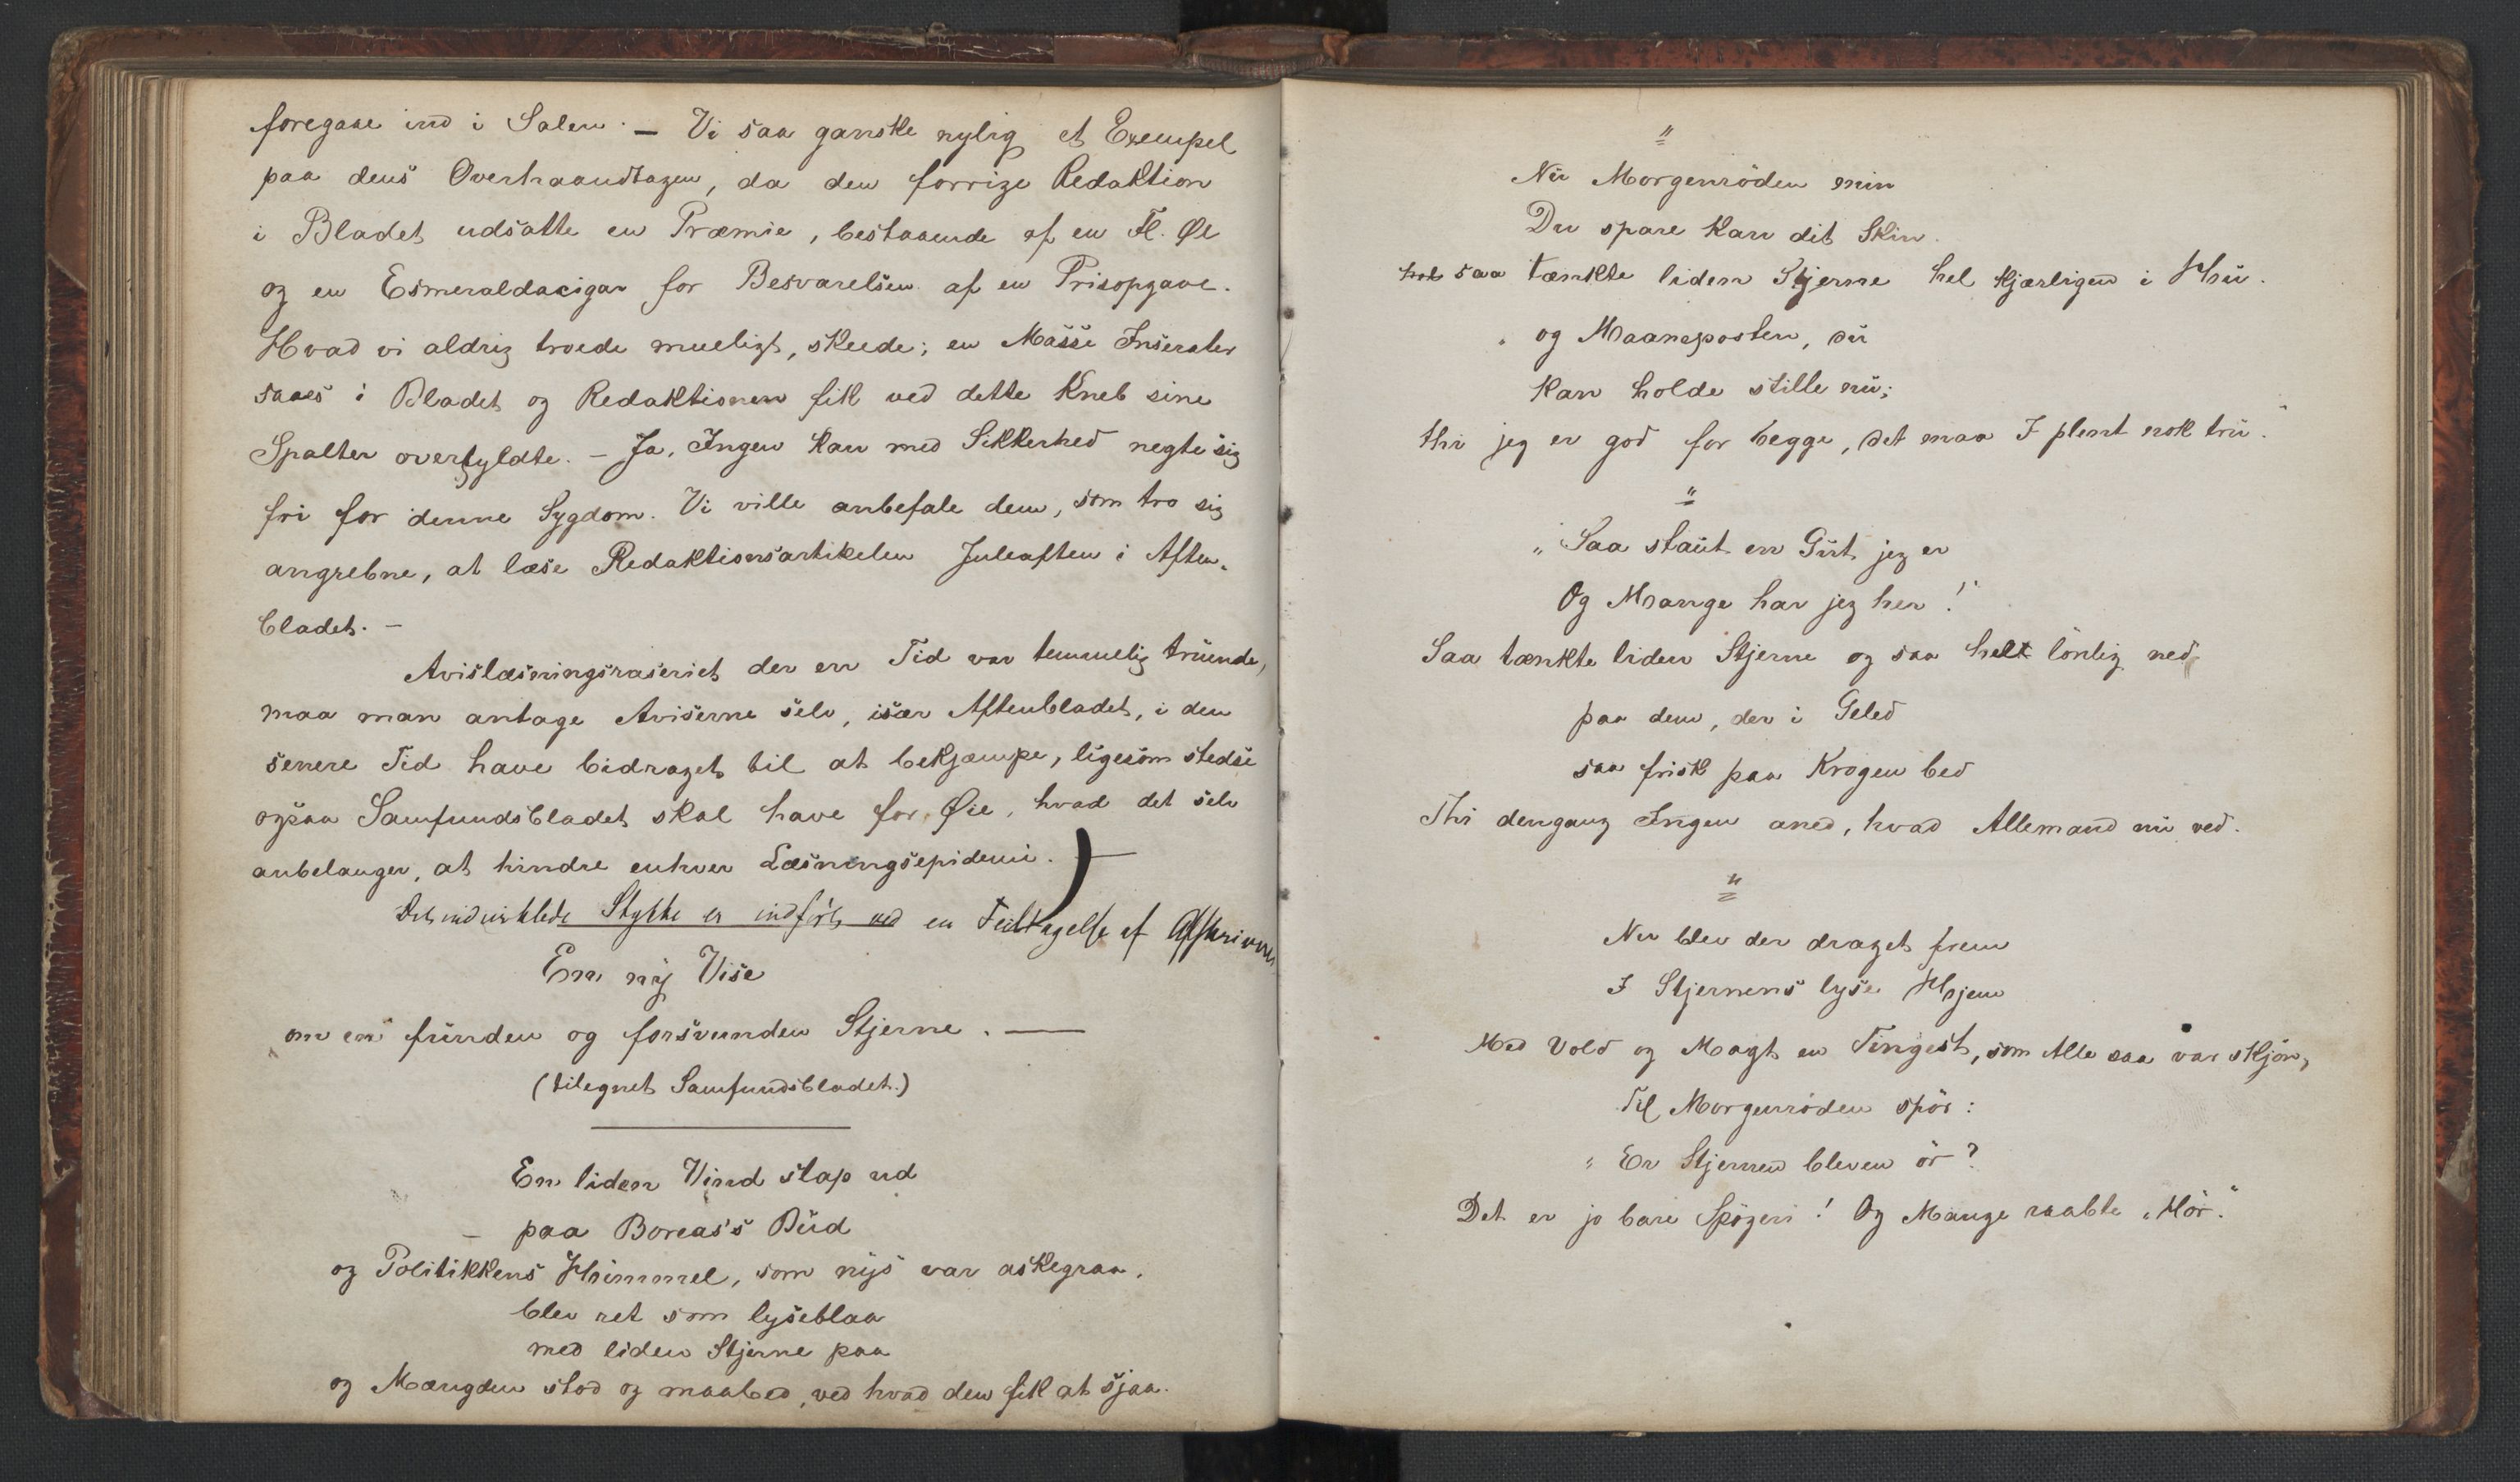 foregaae ind i Salen. — Vi saa ganske nylig et Exempel
paa dens Overhaandtagen, da den forrige Redaktion
i Bladet udsatte en Præmie, bestaaende af en Fl. Øl
og en Esmeraldacigar for Besvarelsen af en Prisopgave.
Hvad vi aldrig troede mueligt, skeede; en Masse Inserater
saaes i Bladet og Redaktionen fik ved dette Kneb sine
Spalter overfyldte. — Ja, Ingen kan med Sikkerhed negte sig
fri for denne Sygdom. Vi ville anbefale dem, som tro sig
angrebne, at læse Redaktionsartikelen Juleaften i Aften-
bladet. —
Avislæsningsraseriet der en Tid var temmelig truende,
maa man antage Aviserne selv, især Aftenbladet, i den
senere Tid have bidraget til at bekjæmpe, ligesom stedse
ogsaa Samfundsbladet skal have for Øie, hvad det selv
anbelanger, at hindre enhver Læsningsepidemi. —
Det indvirklede Stykke er indført ved en Feiltagelse af Afskriveren
En ny Vise
om en funden og forsvunden Stjerne. —
(tilegnet Samfundsbladet.)
En liden Vind slap ud
paa Boreas's Bud
og Politikkens Himmel, som nys var askegraa,
blev ret som lyseblaa
med liden Stjerne paa
og Mængden stod og maabed, ved hvad den fik at sjaa.
"
Nu Morgenröden min
Du spare kan dit Skin.
saa tænkte liden Stjerne hel kjærligen i Hu.
" og Maaneposten, du
kan holde stille nu;
thi jeg er god for begge, det maa I plent nok tru."
"
"Saa staut en Gut jeg er
Og Mange har jeg her!"
Saa tænkte liden Stjerne og saa helt lönlig ned
paa dem, der i Geled
saa frisk paa Krogen bed
Thi dengang Ingen aned, hvad Allemand nu ved.
"
Nu blev der draget frem
I Stjernens lyse Hjem
Med Vold og Magt en Tingest, som Alle saa var skjön,
Til Morgenröden spör:
"Er Stjernen bleven ör?
Det er jo bare Spögeri! Og Mange raabte "Hör."